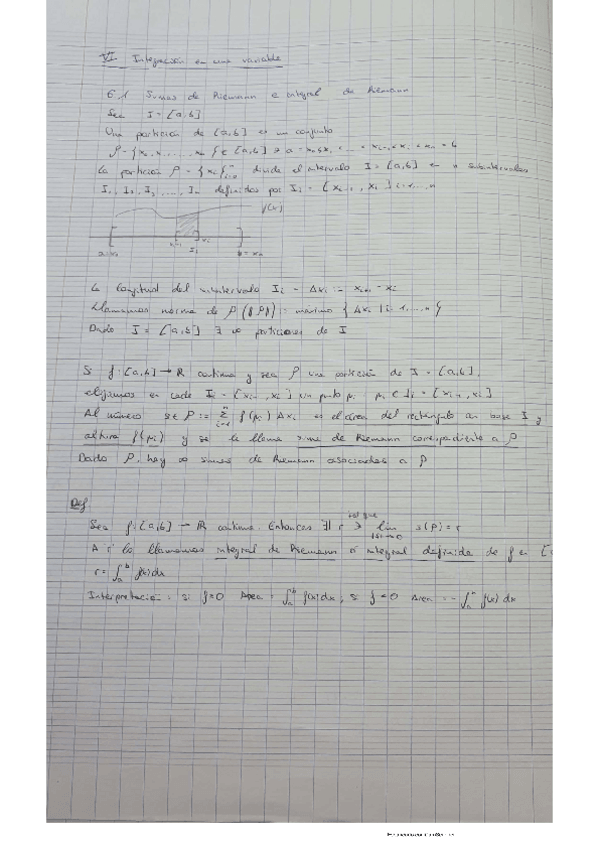 VI Integración en una variable
6.1 Sumas de Riemann e integral de Riemann
Sea I = [a,b]
Una partición de [a,b] es un conjunto
P = {x₀, x₁, ..., xₙ} ∈ [a,b] ∋ a = x₀ ≤ x₁ < ... < xₙ₋₁ ≤ xₙ = b
La partición P = {xᵢ}ⁿᵢ₌₀ divide el intervalo I = [a,b] en n subintervalos
I₁, I₂, I₃, ..., Iₙ definidos por Iᵢ = [xᵢ₋₁, xᵢ] i=1,...,n
f(x)
a = x₀ xᵢ₋₁ xᵢ b = xₙ
Iᵢ
La longitud del subintervalo Iᵢ = Δxᵢ :=
Llamamos norma de P (|P|) : máximo {Δxᵢ | i = 1, ..., n}
Dado I = [a,b] ∃ ∞ particiones de I
Si f: [a,b] → ℝ continua y sea P una partición de I = [a,b],
elijamos en cada Iᵢ = [xᵢ₋₁, xᵢ] un punto μᵢ μᵢ ∈ Iᵢ = [xᵢ₋₁, xᵢ]
Al número P := Σⁿᵢ₌₁ f(μᵢ) Δxᵢ es el área del rectángulo con base I y
altura f(μᵢ) y se le llama suma de Riemann correspondiente a P
Dado P, hay ∞ sumas de Riemann asociadas a P
Def
Sea f: [a,b] → ℝ continua. Entonces ∃! r ∋ lim s(P) = r
tal que
A r lo llamamos integral de Riemann ó integral definida de f en [
r = ∫ₐᵇ f(x) dx
Interpretación: si f≥0 Área = ∫ₐᵇ f(x) dx, si f≤0 Área = -∫ₐ f(x) dx